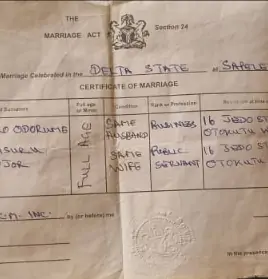 THE
MARRIAGE ACT
Section 24
Marriage Celebrated in the DELTA STATE at SAPELE
CERTIFICATE OF MARRIAGE
Full age or Minor
Condition
Rank or Profession
FULL AGE
ODORUME
SAME
HUSBAND
BUSINESS
16 JEDO ST
OTOKUTU
OJOR
SAME
WIFE
PUBLIC
SERVANT
16 JEDO ST
OTOKUTU
INC. by (or before) me
in the presence